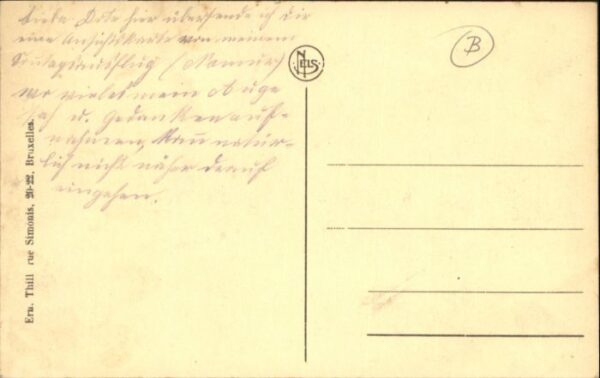 Liebe Dota hier übersende ich dir
eine Ansichtskarte von meinem
Sonntagsausflug (Namur)
wo vieles mein Auge
sah u. Gedanken auf-
nahmen, kann natür-
lich nicht näher darauf
eingehen.
NELS
B
Ern. Thill rue Simonis, 20-22, Bruxelles.